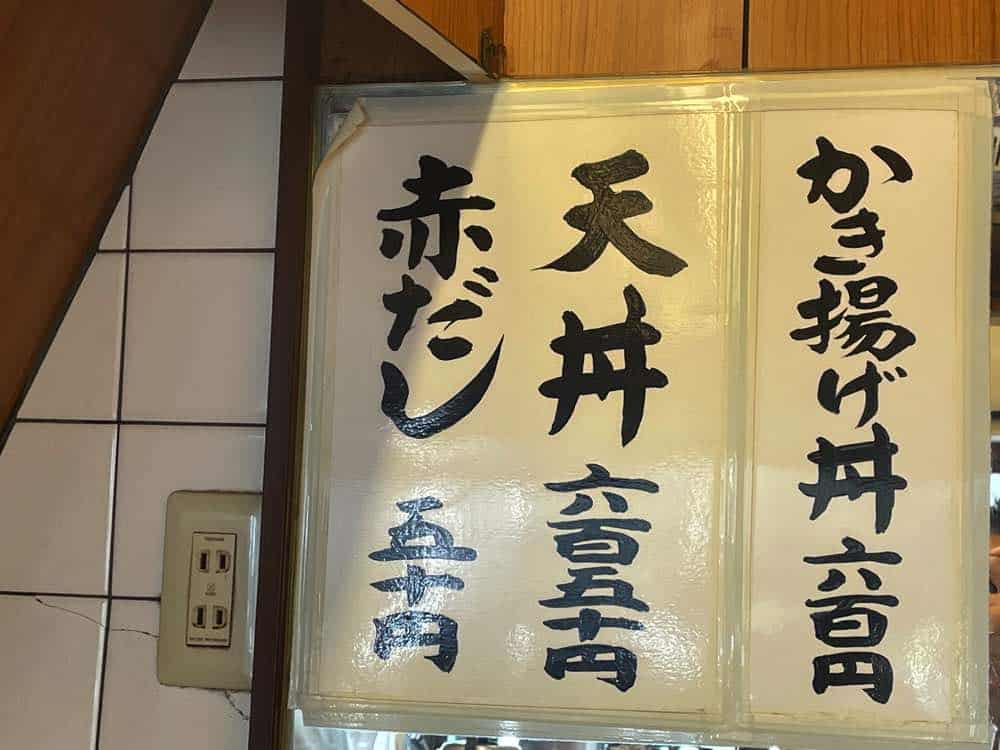 かき揚げ丼 六百円
天丼 六百五十円
赤だし 五十円